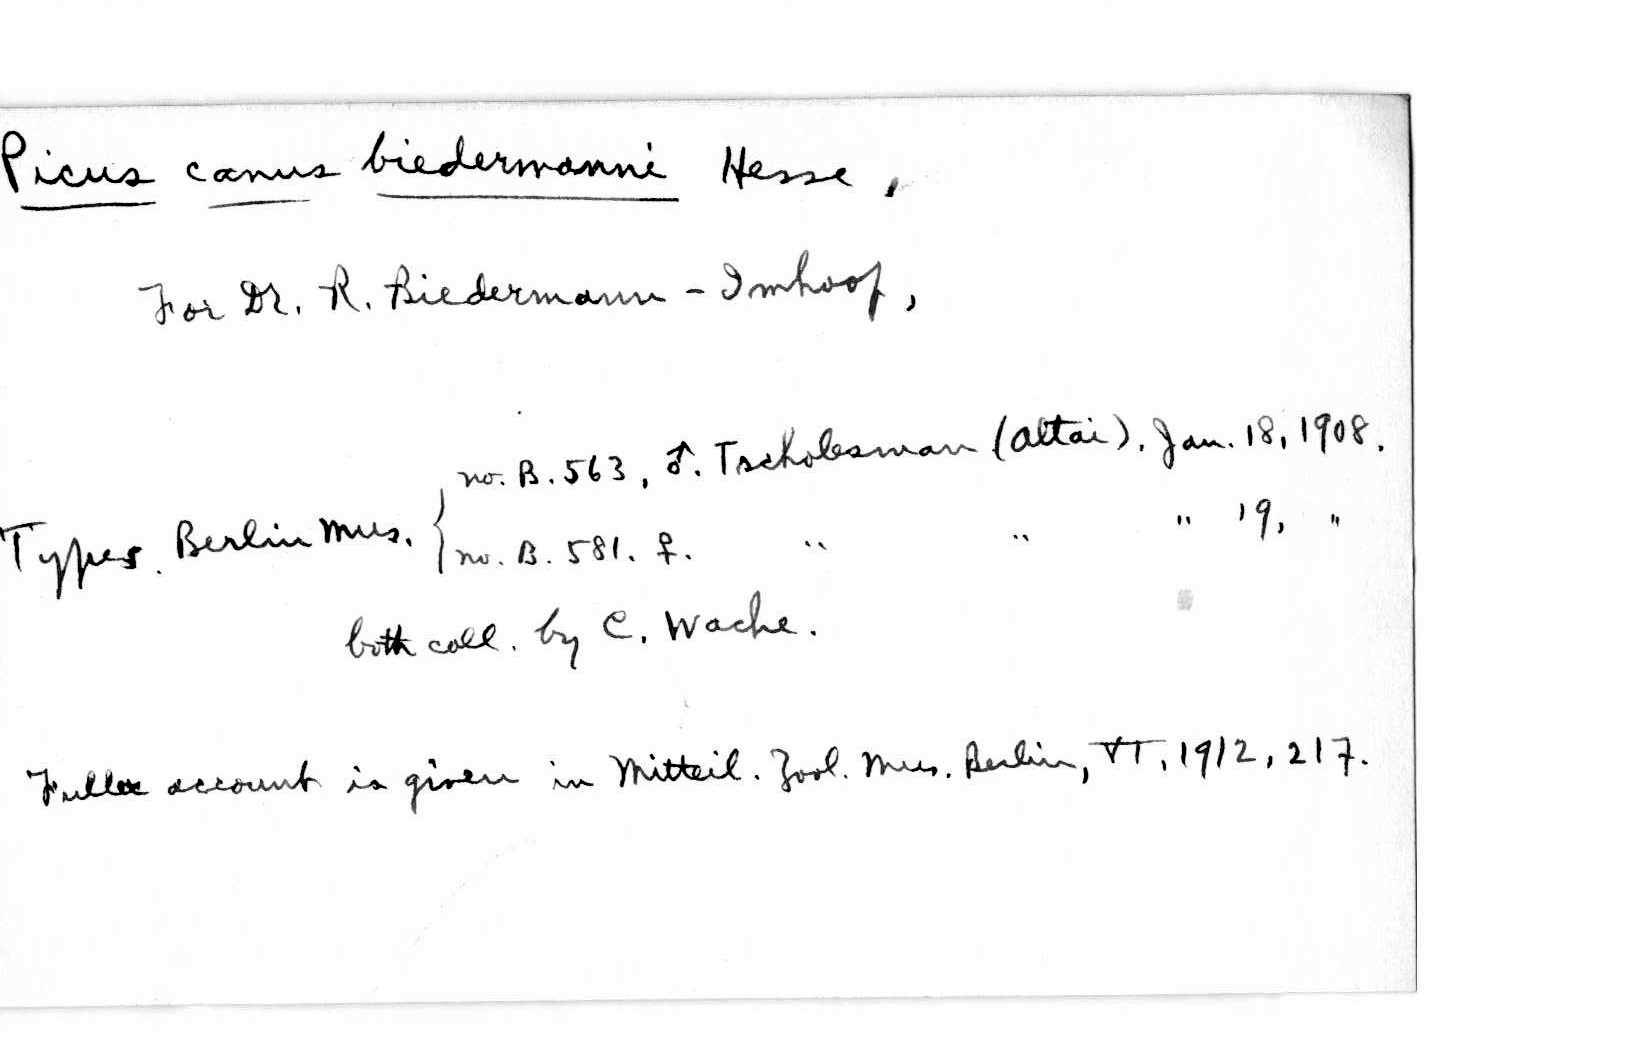 Picus canus biedermanni Hesse,
For Dr. R. Biedermann-Imhoof,
no. B. 563, ♂. Tscholesman (Altai). Jan. 18, 1908.
Types. Berlin Mus. {
no. B. 581. ♀. " " " 19, "
both coll. by C. Wache.
Fuller account is given in Mitteil. Zool. Mus. Berlin, VI, 1912, 217.